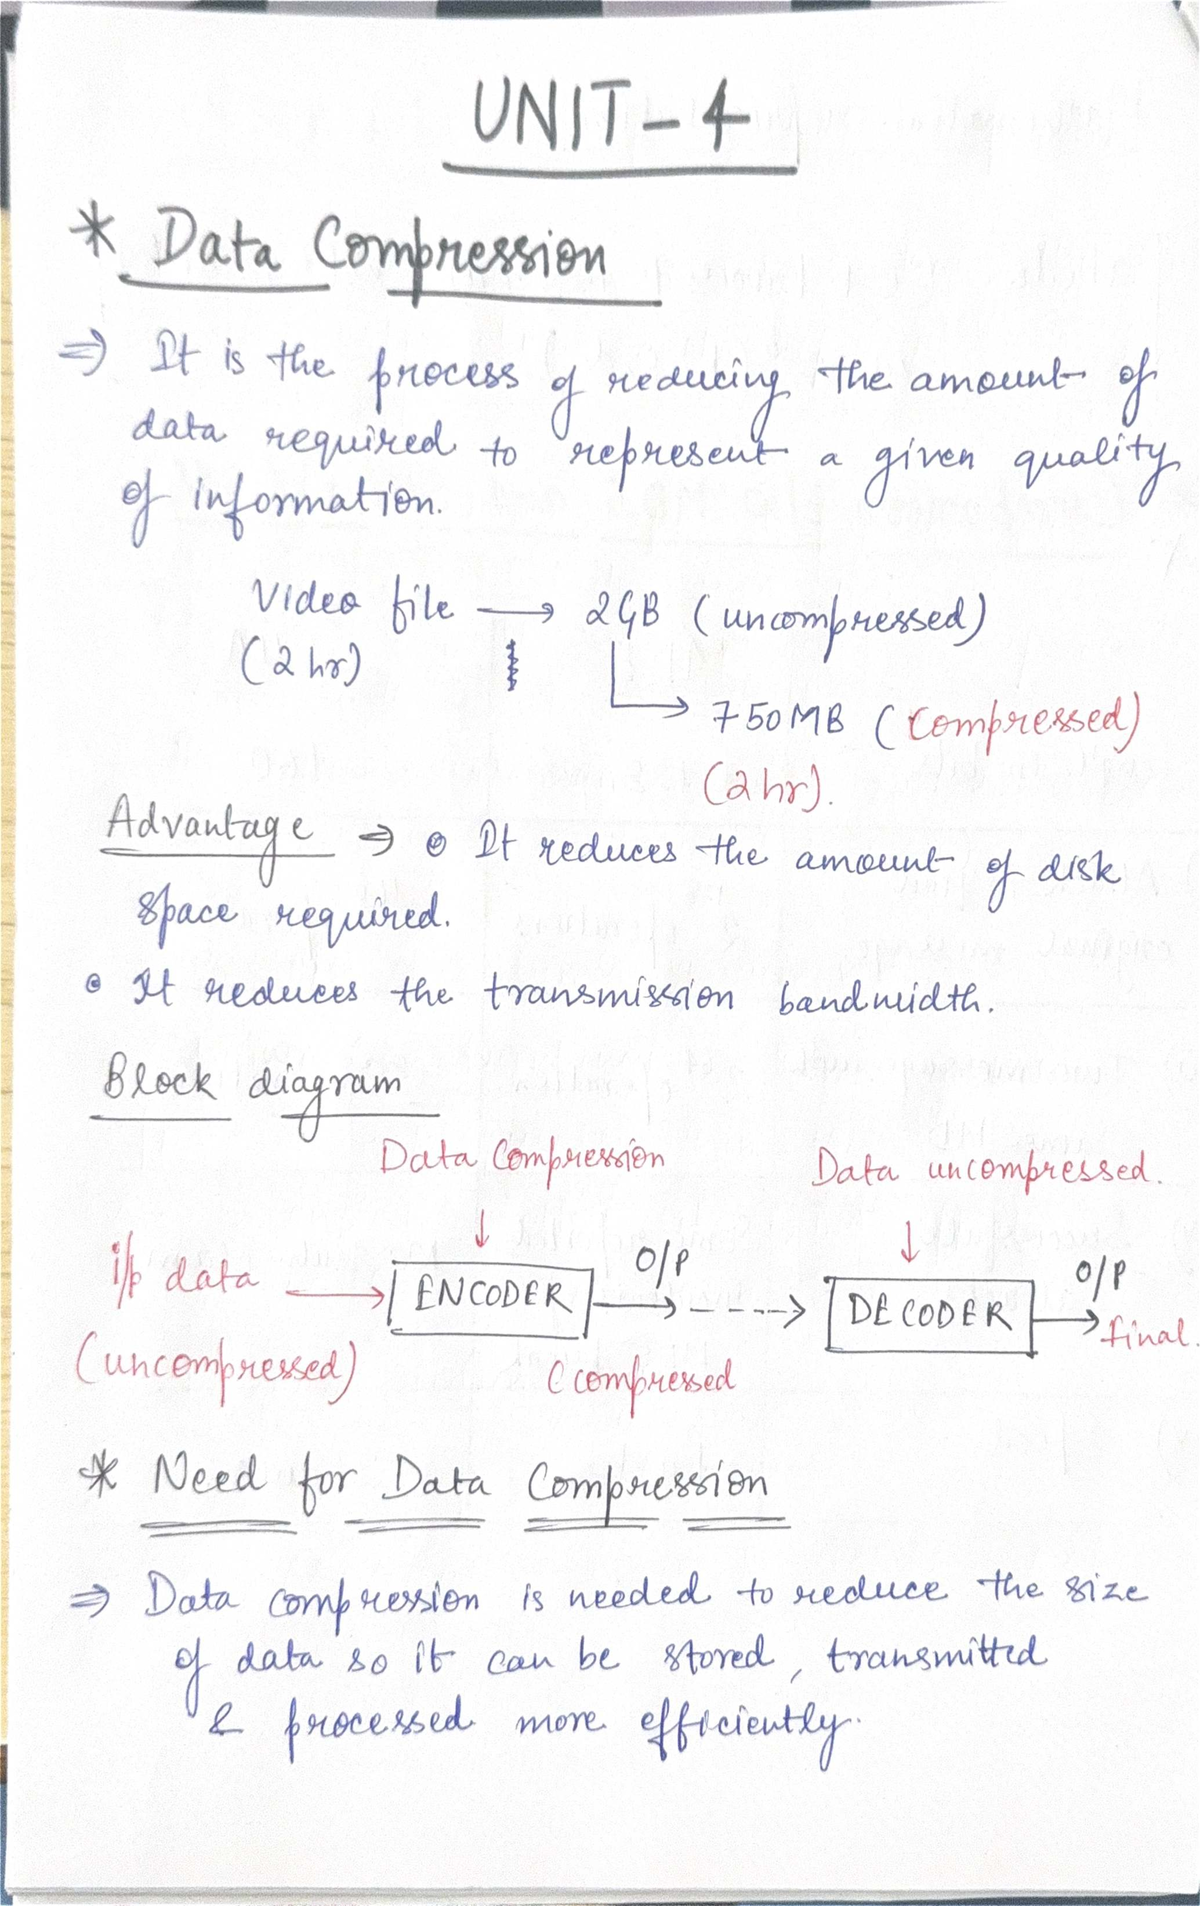 UNIT-4
* Data Compression
⇒ It is the process of reducing the amount of
data required to represent a given quality
of information.
Video file → 2GB (uncompressed)
(2 hr)
→ 750MB (Compressed)
(2 hr).
Advantage ⇒ • It reduces the amount of disk
space required.
• It reduces the transmission bandwidth.
Block diagram
Data Compression Data uncompressed.
↓ ↓
i/p data → ENCODER O/P → ---→ DECODER O/P → final.
(uncompressed) (compressed
* Need for Data Compression
⇒ Data compression is needed to reduce the size
of data so it can be stored, transmitted
& processed more efficiently.